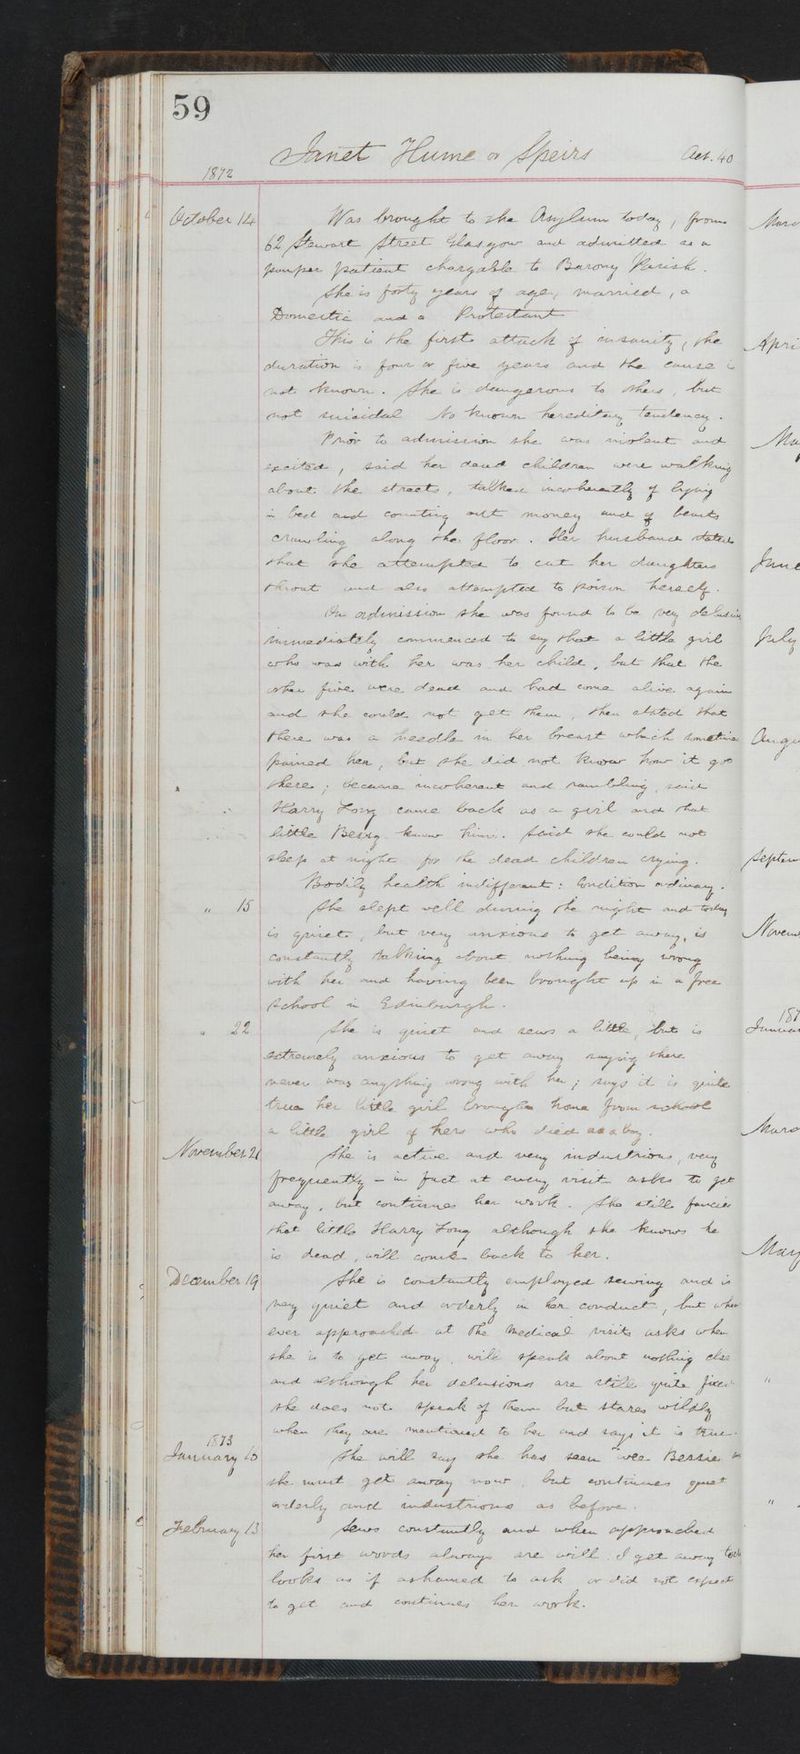 59
Janet Hume or Speirs Aet. 40
1872
October 14 Was brought to the Asylum today, from
62 Stewart Street Glasgow and admitted as a
pauper patient chargable to Barony Parish.
She is forty years of age, married, a
Domestic and a Protestant
This is the first attack of insanity, the
duration is four or five years and the cause is
not known. She is dangerous to others, but
not suicidal No known hereditary tendency.
Prior to admission she was violent and
excited, said her dead children were walking
about the streets, talked incoherently of lying
in bed and counting out money and of beasts
crawling along the floor. Her husband states
that she attempted to cut her daughters
throat and also attempted to poison herself.
On admission she was found to be very
immediately commenced to say that a little girl
who was with her was her child, but that the
other five were dead and had come alive again
and she could not get them, then stated that
there was a needle in her breast which sometimes
pained her, but she did not know how it got
there; became incoherent and rambling, said
Harry Long came back as a girl and that
little knew him. Said she could not
sleep at night for the dead children crying.
Bodily health indifferent: Condition ordinary.
" 15 She slept well during the night and today
is quiet, but very anxious to get away, is
constantly talking about nothing being wrong
with her and having been brought up in a free
School in Edinburgh.
" 22 She is quiet and sews a little, but is
extremely anxious to get away saying there
never was anything wrong with her; says it is quite
true her little girl brought home from school
a little girl of hers who died as a boy.
November 21 She is active and very industrious, very
frequently – in fact at every visit asks to get
away, but continues her work. She still fancies
that little Harry Long although she knows he
is dead, will come back to her.
December 19 She is constantly employed sewing and is
very quiet and orderly in her conduct, but when
ever approached at the medical visits asks when
she is to get away, will speak about nothing else
and although her delusions are still quite fixed
she does not speak of them but stares wildly
when they are mentioned to her and says it is true.
1873
January 10 She will say she has seen wee Bessie
she must get away now, but continues quiet
orderly and industrious as before.
February 13 Sews constantly and when approached
her first words always are will I get away
looks as if ashamed to ask or did not expect
to get and continues her work.